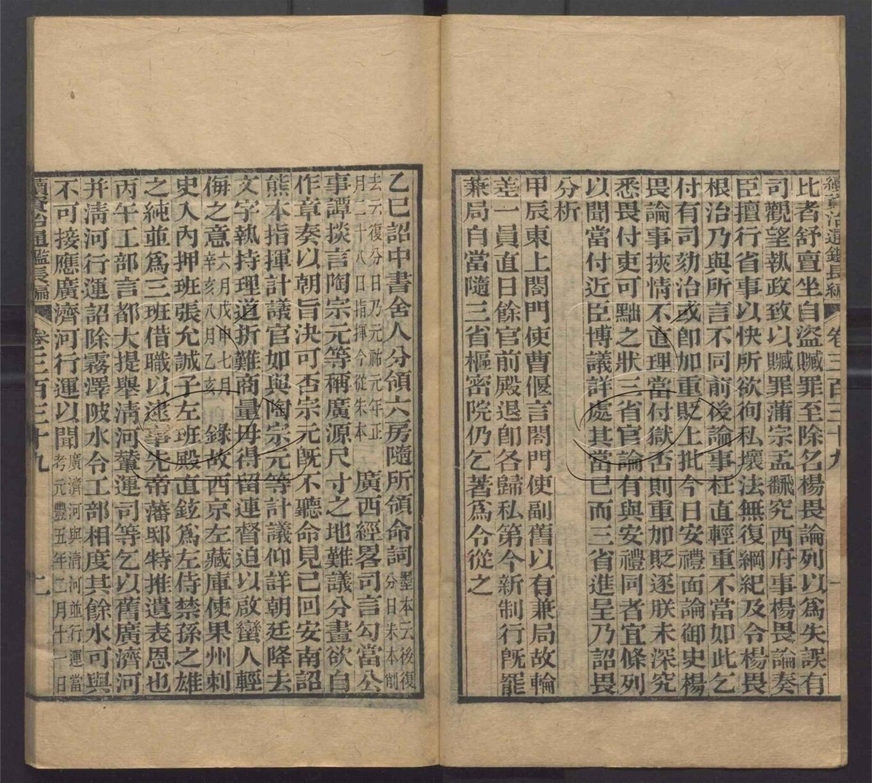 續資治通鑑長編 卷三百三十九 一
比者舒亶坐自盜贓罪至除名楊畏論列以為失誤有
司觀望執政致以贓罪蒲宗孟翫究西府事楊畏論奏
臣擅行省事以快所欲徇私壞法無復綱紀及令楊畏
根治乃與所言不同前後論事枉直輕重不當如此乞
付有司劾治或卽加重貶上批今日安禮面論御史楊
畏論事挾情不直理當付獄否則重加貶逐朕未深究
悉畏付吏可黜之狀三省官論有與安禮同者宜條列
以聞當付近臣博議詳處其當已而三省進呈乃詔畏
分析
甲辰東上閤門使曹偃言閤門使副舊以有兼局故輪
差一員直日餘官前殿退卽各歸私第今新制行旣罷
兼局自當隨三省樞密院仍乞著為令從之
乙巳詔中書舍人分領六房隨所領命詞墨本云後復分日朱本削
去云復分日乃元祐元年正月二十八日指揮今從朱本 廣西經畧司言勾當公
事譚掞言陶宗元等稱廣源尺寸之地難議分畫欲自
作章奏以朝旨決可否宗元旣不聽命見已回安南詔
熊本指揮計議官如與陶宗元等計議仰詳朝廷降去
文字執持理道折難商量毋得留連督迫以啟蠻人輕
侮之意六月戊申七月辛亥八月乙亥 錄故西京左藏庫使果州刺
史入內押班張允誠子左班殿直鉉為左侍禁孫之雄
之純並為三班借職以逮事先帝藩邸特推遺表恩也
丙午工部言都大提舉清河輦運司等乞以舊廣濟河
并清河行運詔除霧澤陂水令工部相度其餘水可與
不可接應廣濟河行運以聞廣濟河與清河並行運當考元豐五年二月十一日
續資治通鑑長編 卷三百三十九 二